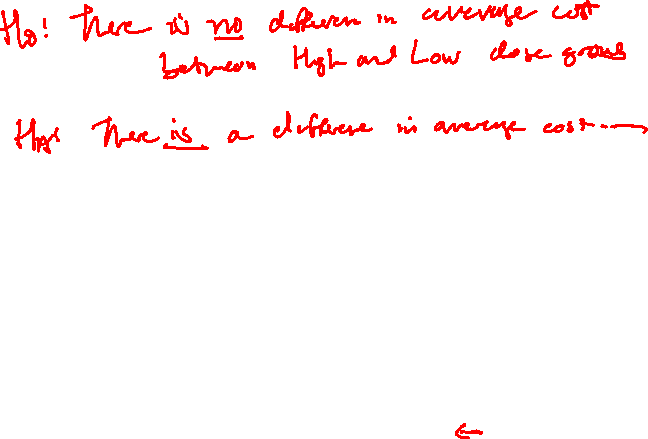 H0: There is no differen in average cost
between High and Low dose groups
HA: There is a difference in average cost